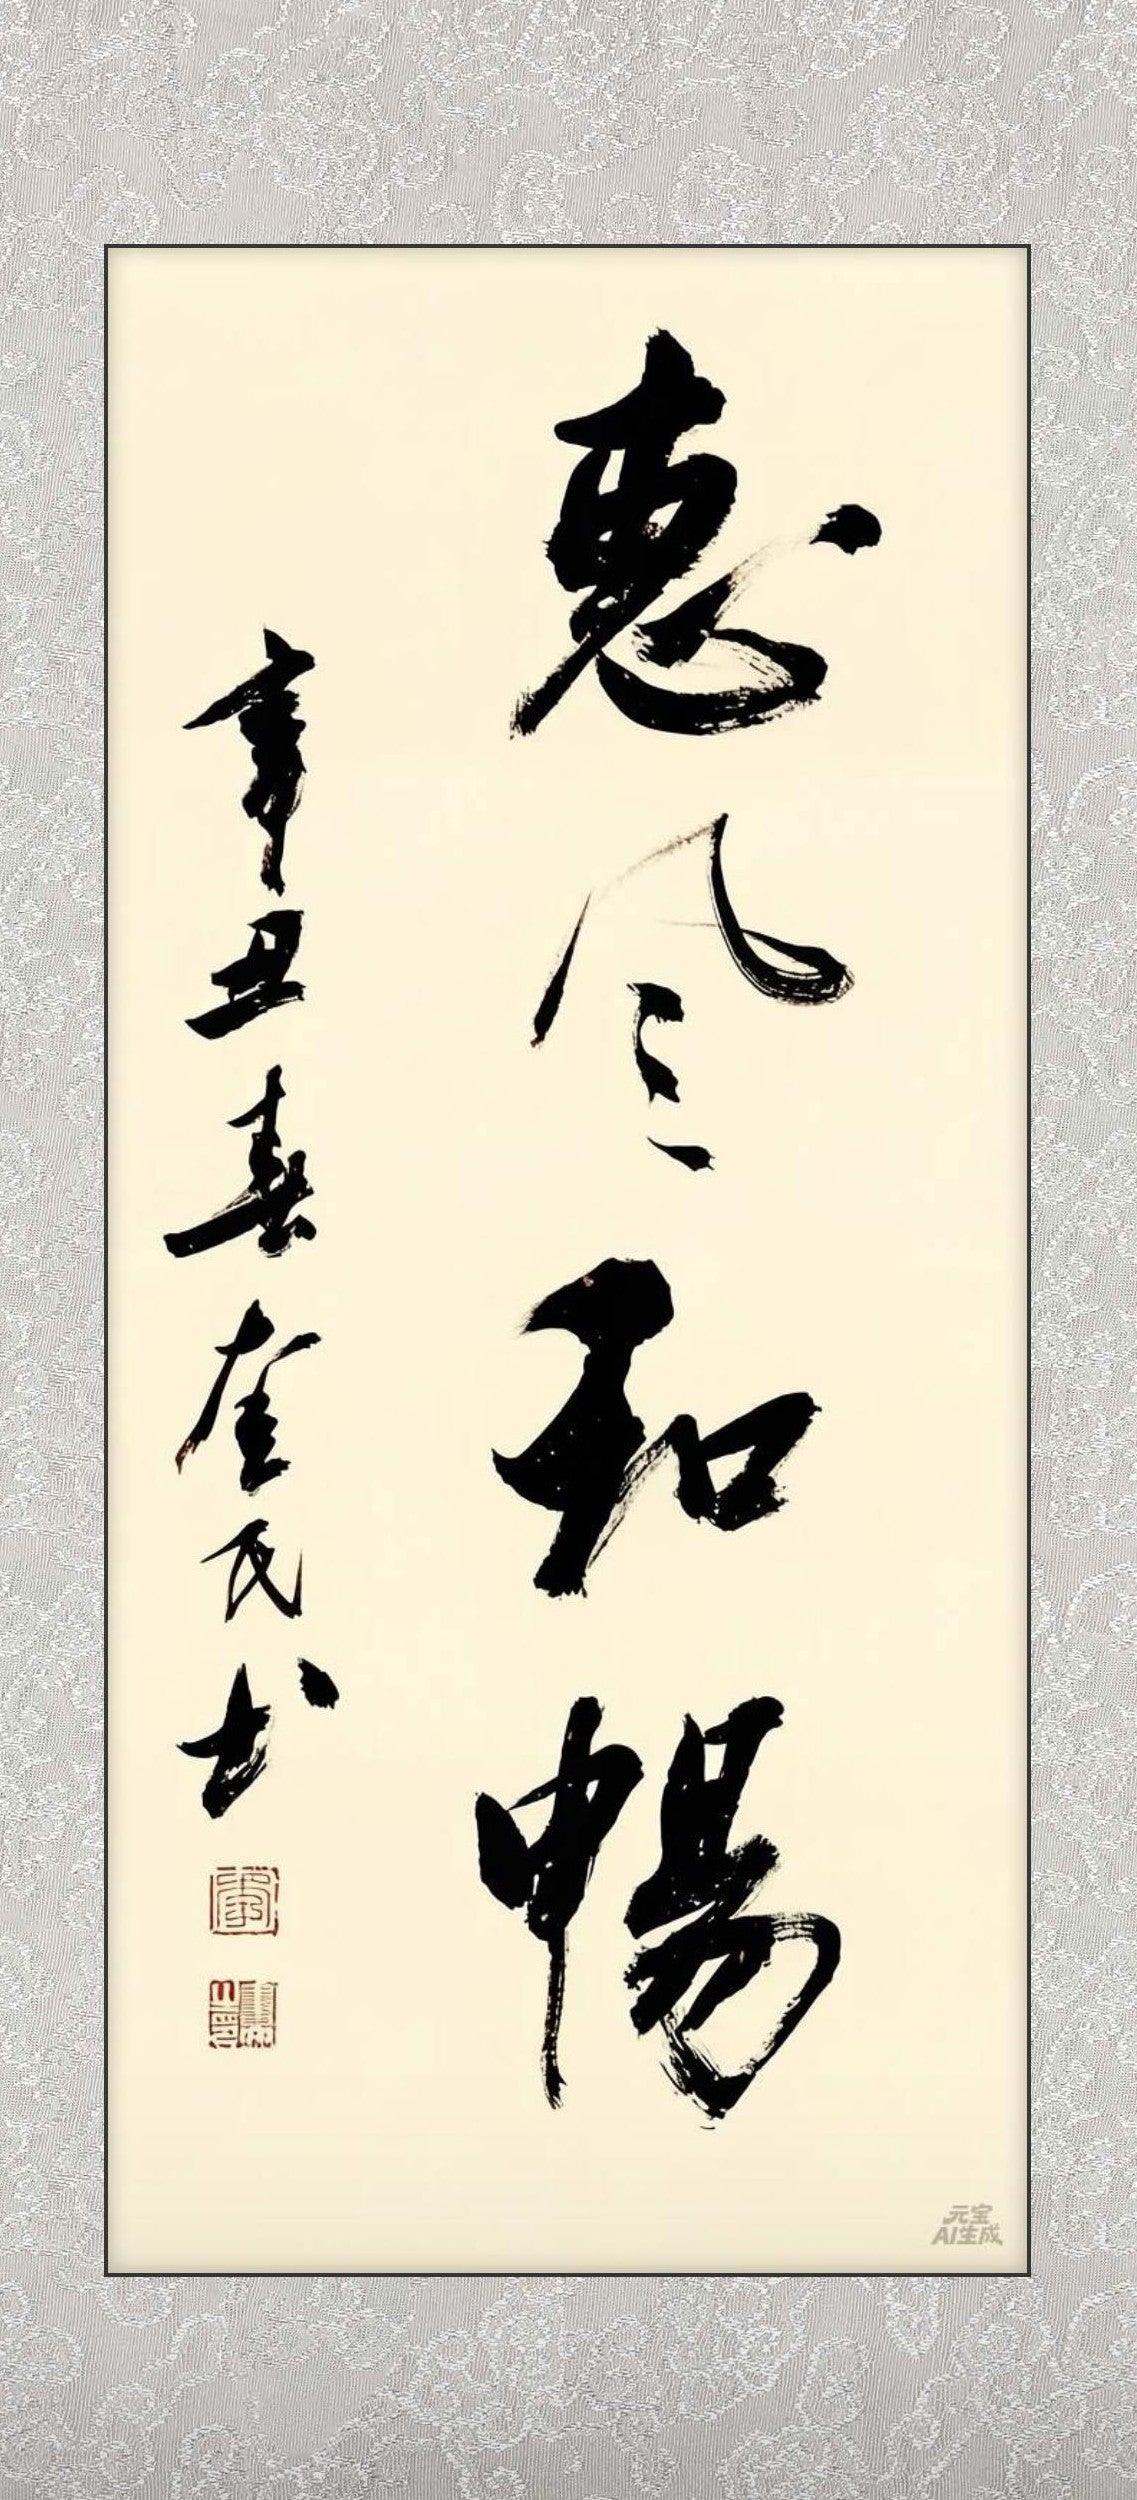 惠风和畅
辛丑春奎民书
元宝
AI生成